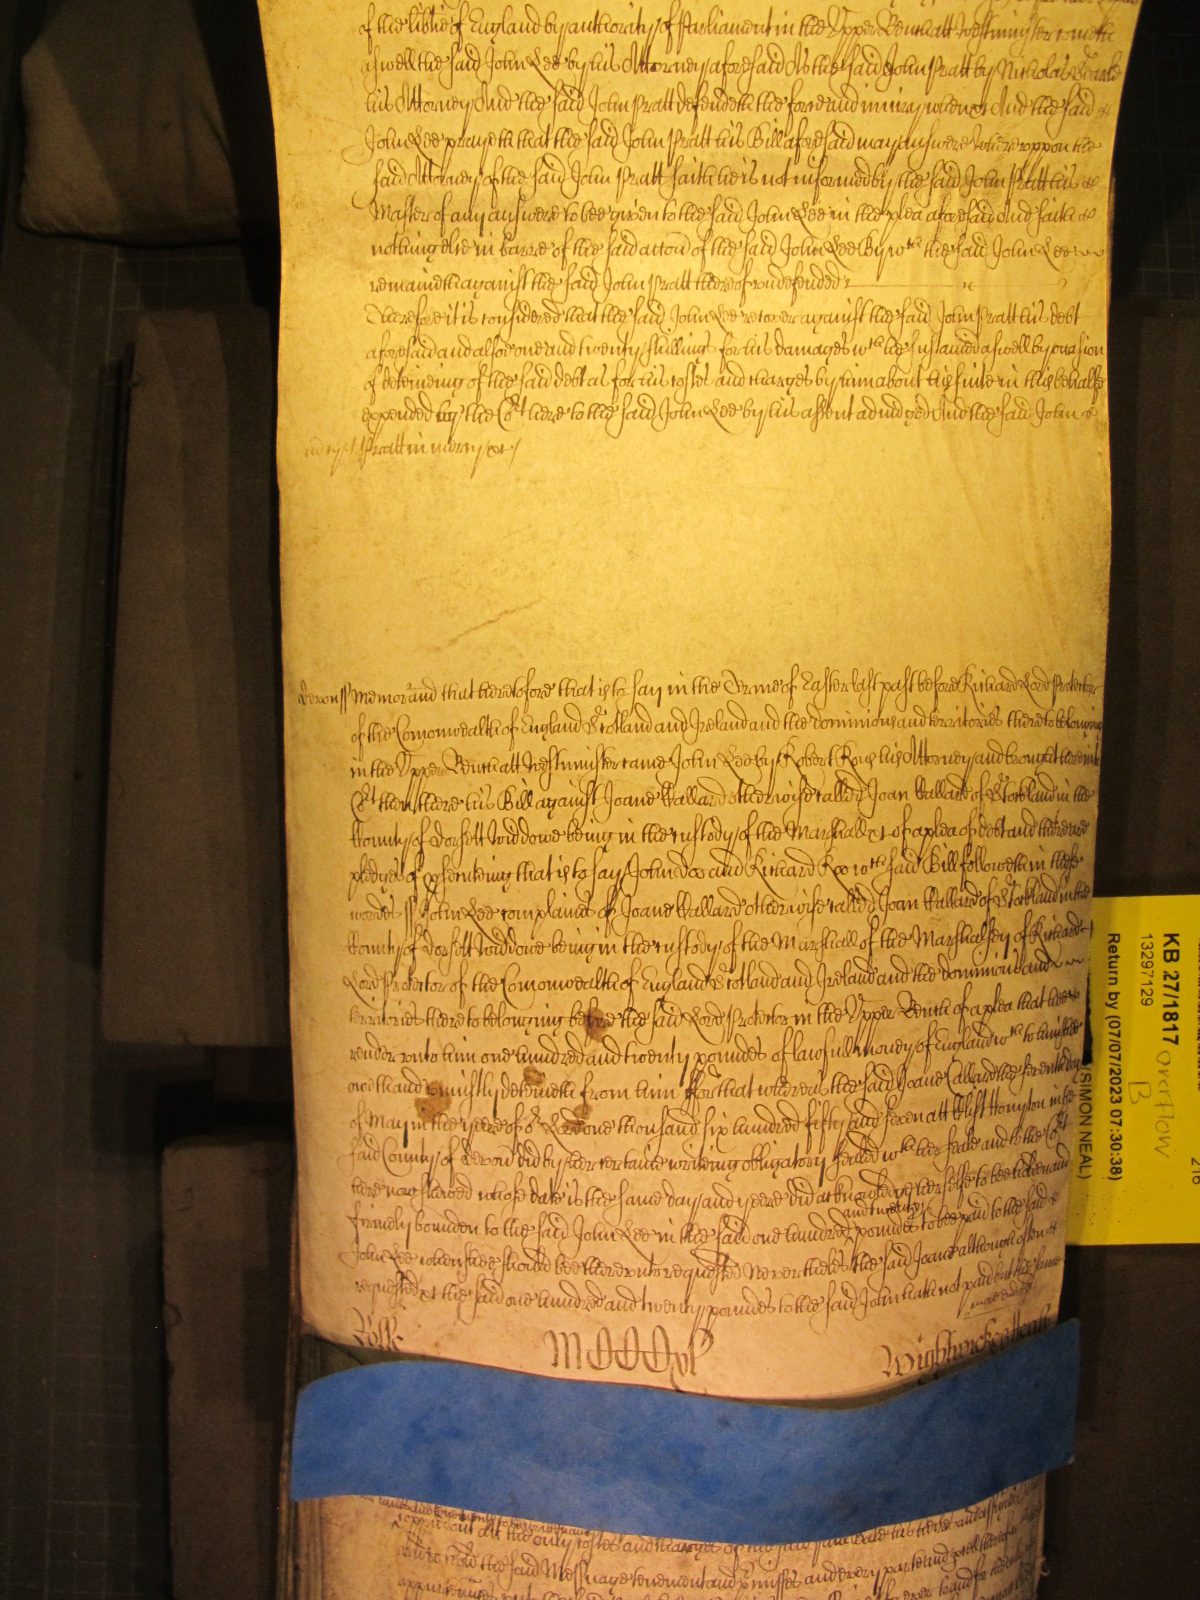 of the libtie of England by authority of Parliament in the Upper Bench att Westminster cometh
aswell the said John Lee by his Attorney aforesaid As the said John Pratt by Nicholas
his Attorney And the said John Pratt defendeth the force and iniury when &c And the said
John Lee prayeth that the said John Pratt his Bill aforesaid may answere Whereuppon the
said Attorney of the said John Pratt saith he is not informed by the said John Pratt his
Master of any answere to bee given to the said John Lee in the plea aforesaid And saith
nothing else in barre of the said accon of the said John Lee By wch the said John Lee
remaineth against the said John Pratt thereof undefended
Therefore it is considered that the said John Lee recover against the said John Pratt his debt
aforesaid and alsoe one and twenty shillings for his damages wch hee sustained aswell by occasion
of deteineing of the said debt as for his costes and charges by him about his suite in this behalfe
expended by the Cort here to the said John Lee by his assent adiudged And the said John
Pratt in mercy &c
Devon ss Memorand that heretofore that is to say in the Terme of Easter last past before Richard Lord Protector
of the Comonwealth of England Scotland and Ireland and the dominions and territories thereto belonging
in the Upper Bench att Westminster came John Lee by Robert his Attorney and brought here into
Cort then there his Bill against Joane Callard otherwise called Joan Callard of Stockland in the
County of Dorsett Widdowe being in the custody of the Marshall &c of a plea of debt and there are
pledges of psecuteing that is to say John Doo and Richard Roo wch said Bill followeth in these
wordes ss John Lee complaines of Joane Callard otherwise called Joan Callard of Stockland in the
County of Dorsett Widdowe being in the custody of the Marshall of the Marshalsey of Richard
Lord Protector of the Comonwealth of England Scotland and Ireland and the dominions and
territories thereto belonging before the said Lord Protector in the Upper Bench of a plea that hee
render unto him one hundred and twenty poundes of lawfull money of England wch to him shee
oweth and uniustly deteineth from him For that whereas the said Joane Callard the seventh day
of May in the yeere of or Lord one thousand six hundred fifty and seven att in the
said County of Devon did by her certaine writeing obligatory sealed wth her seale and to the Cort
here now shewed whose date is the same day and yeere did acknowledge herselfe to bee holden and
firmely bounden to the said John Lee in the said one hundred and twenty poundes to bee paid to the said
John Lee when shee should bee thereunto requested Neverthelesse the said Joane although often
requested &c the said one hundred and twenty poundes to the said John hath not paid but the same
Rolle
Wightwicke
KB 27/1817 overflow
13297129 B
Return by (07/07/2023 07:30:38)
(SIMON NEAL)
216
the said Messuage tenement and pmisses and every parte and